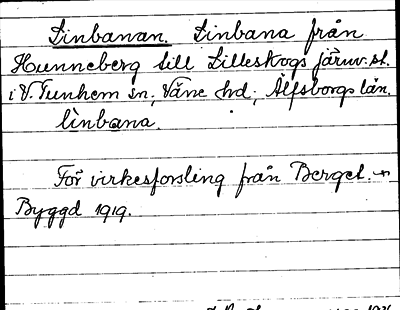 Linbanan. Linbana från
Hunneberg till Lilleskogs järnv.st.
i V.Tunhem sn, Väne hd, Älfsborgs län.
linbana.
För virkesforsling från Berget.
Byggd 1919.